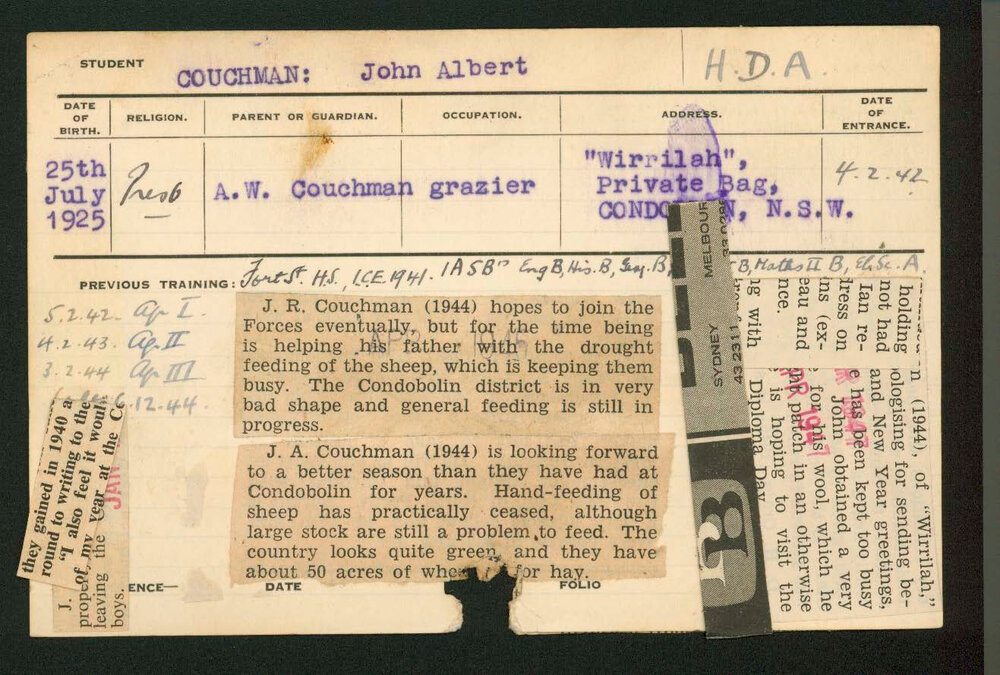 STUDENT COUCHMAN: John Albert H.D.A.
DATE OF BIRTH.
RELIGION.
PARENT OR GUARDIAN.
OCCUPATION.
ADDRESS.
DATE OF ENTRANCE.
25th July 1925
Presb
A.W. Couchman grazier
"Wirrilah",
Private Bag,
N.S.W.
4.2.42
PREVIOUS TRAINING: Fort St. H.S., LCE 1941. 1A 5Bs Eng B, His. B, Geog. B, B, Maths II B, El. Sc. A.
5.2.42 Ag I.
4.2.43. Ag. II
3.2.44 Ag III
6.12.44.
J. R. Couchman (1944) hopes to join the
Forces eventually, but for the time being
is helping his father with the drought
feeding of the sheep, which is keeping them
busy. The Condobolin district is in very
bad shape and general feeding is still in
progress.
J. A. Couchman (1944) is looking forward
to a better season than they have had at
Condobolin for years. Hand-feeding of
sheep has practically ceased, although
large stock are still a problem to feed. The
country looks quite green, and they have
about 50 acres of for hay.
they gained in 1940 a
round to writing to the
"I also feel it would
J.
of my year at the
leaving the
boys.
JAN
SYDNEY
43 2311
MELBOUR
B
n (1944), of "Wirrilah,"
holding ologising for sending be-
not had and New Year greetings,
Ian re- e has been kept too busy
ress on John obtained a very
ns (ex- for his wool, which he
eau and patch in an otherwise
nce. is hoping to visit the
ng with Diploma Day
1947
ENCE—
DATE
FOLIO